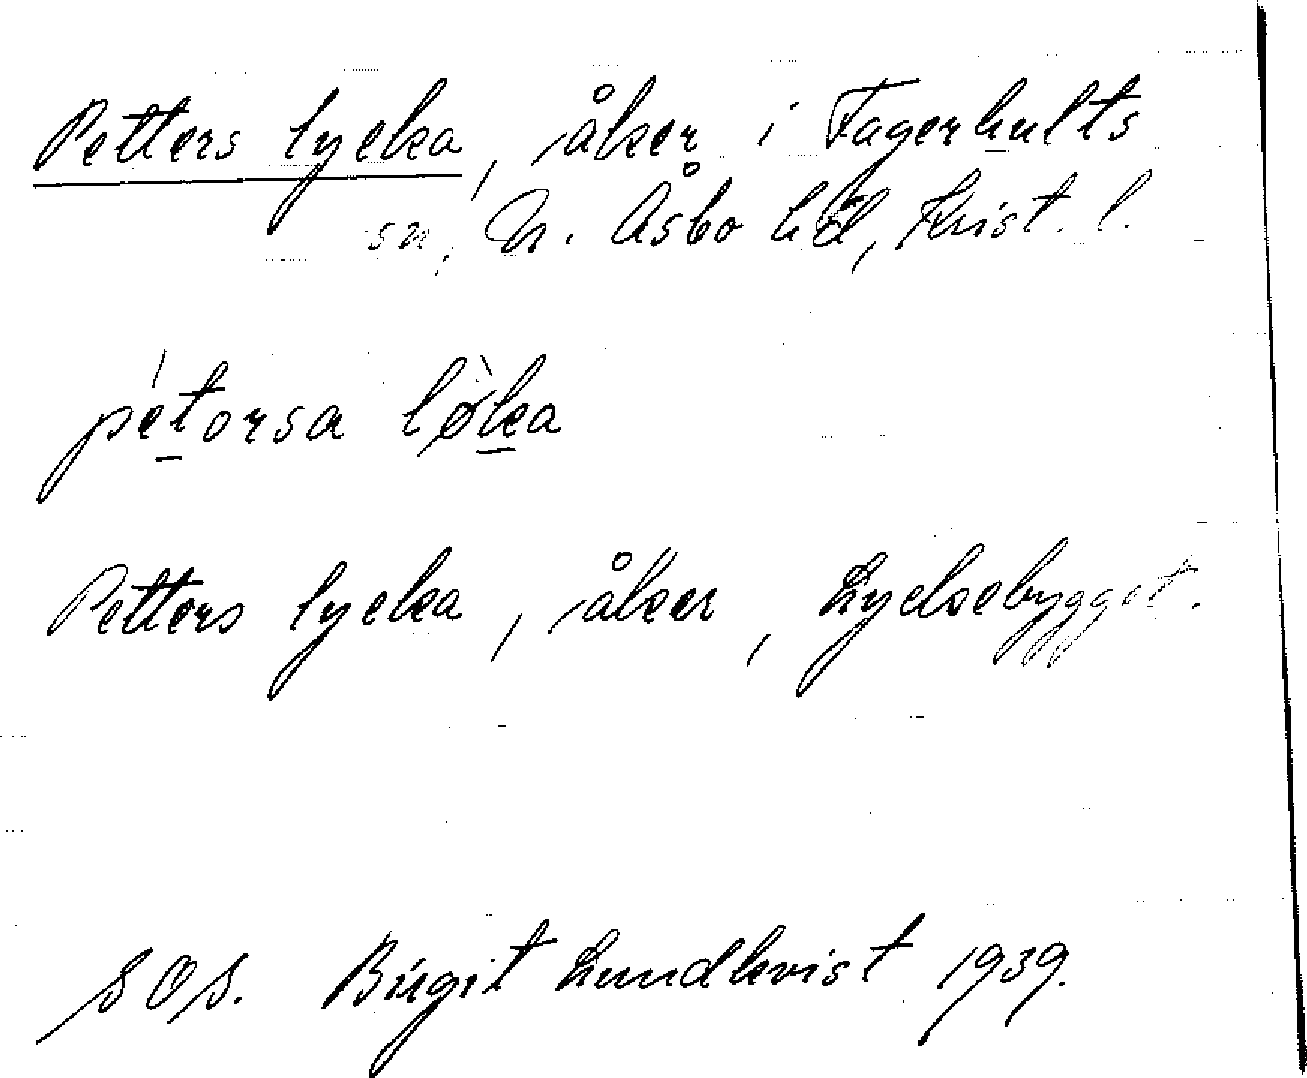 Petters lycka, åker i Fagerhults
sn, N. Åsbo hd, Krist. l.
pétorsa lø̀ka
Petters lycka, åker, Lyckebygget.
SOS. Birgit Lundkvist 1939.